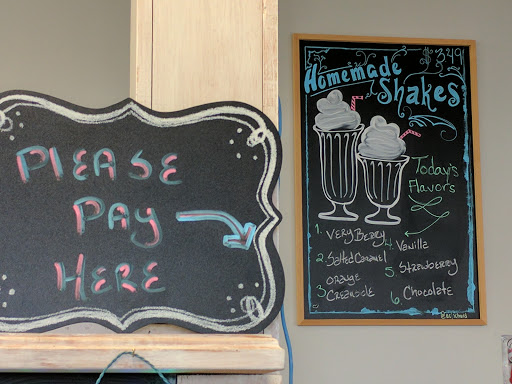 PLEASE
PAY
HERE
$3.49
Homemade
Shakes
Today's
Flavors
1. VERY BERRY
2. Salted Caramel
3. ORANGE
CREAMSICLE
4. Vanilla
5. STRAWBERRY
6. Chocolate